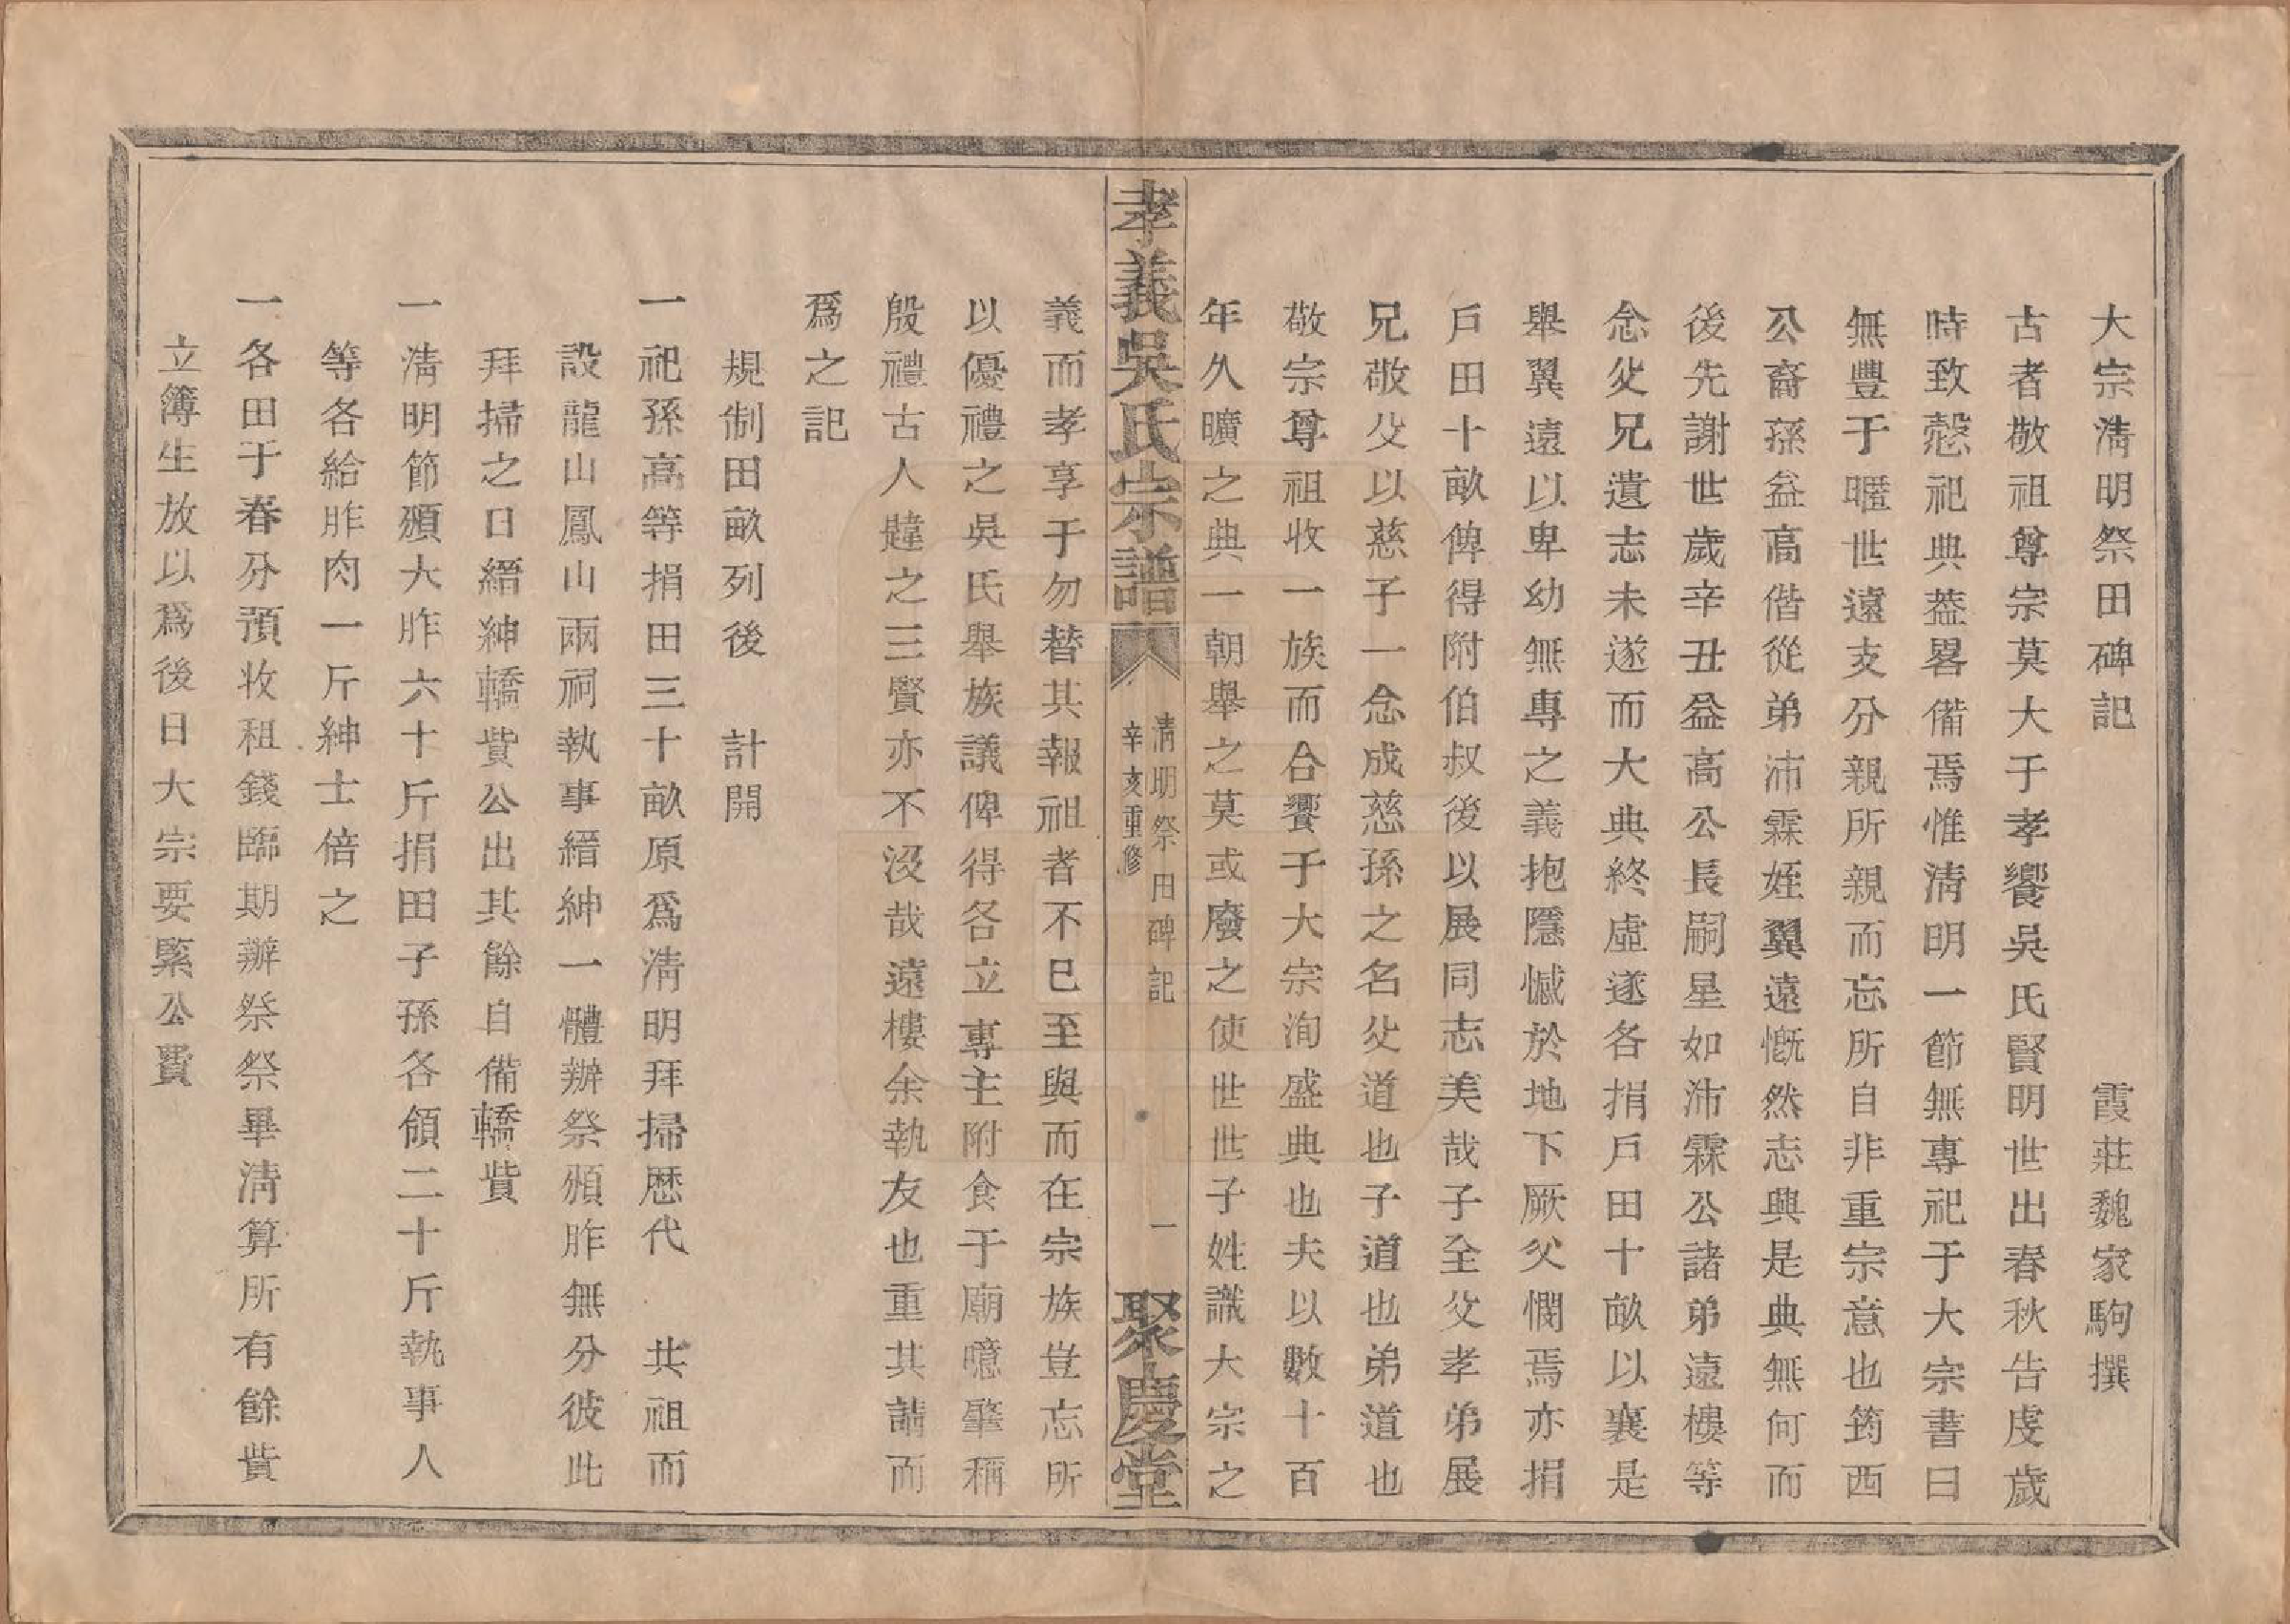 大宗清明祭田碑記　霞莊魏家駒撰
古者敬祖尊宗莫大于孝饗吳氏賢明世出春秋告虔歲
時致慤祀典葢畧備焉惟清明一節無專祀于大宗書曰
無豐于暱世遠支分親所親而忘所自非重宗意也筠西
公裔孫益高偕從弟沛霖姪翼遠慨然志興是典無何而
後先謝世歲辛丑益高公長嗣星如沛霖公諸弟遠樓等
念父兄遺志未遂而大典終虛遂各捐戶田十畝以襄是
舉翼遠以卑幼無專之義抱隱憾於地下厥父憫焉亦捐
戶田十畝俾得附伯叔後以展同志美哉子全父孝弟展
兄敬父以慈子一念成慈孫之名父道也子道也弟道也
敬宗尊祖收一族而合饗于大宗洵盛典也夫以數十百
年久曠之典一朝舉之莫或廢之使世世子姓識大宗之
孝義吳氏宗譜
清明祭田碑記
辛亥重修
一
聚慶堂
義而孝享于勿替其報祖者不巳至與而在宗族豈忘所
以優禮之吳氏舉族議俾得各立專主附食于廟噫肇稱
殷禮古人韙之三賢亦不沒哉遠樓余執友也重其請而
爲之記
規制田畝列後　計開
一祀孫高等捐田三十畝原爲淸明拜掃歷代　共祖而
設龍山鳳山兩祠執事縉紳一體辦祭頒胙無分彼此
拜掃之日縉紳轎貲公出其餘自備轎貲
一淸明節頒大胙六十斤捐田子孫各領二十斤執事人
等各給胙肉一斤紳士倍之
一各田于春分預收租錢臨期辦祭祭畢淸算所有餘貲
立簿生放以爲後日大宗要緊公費